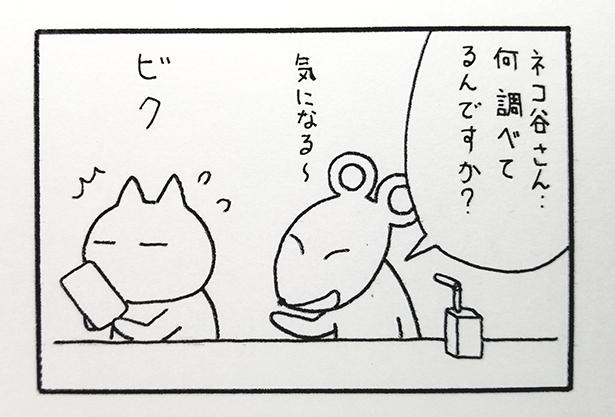 ネコ谷さん‥
何調べて
るんですか?
気になる〜
ビク